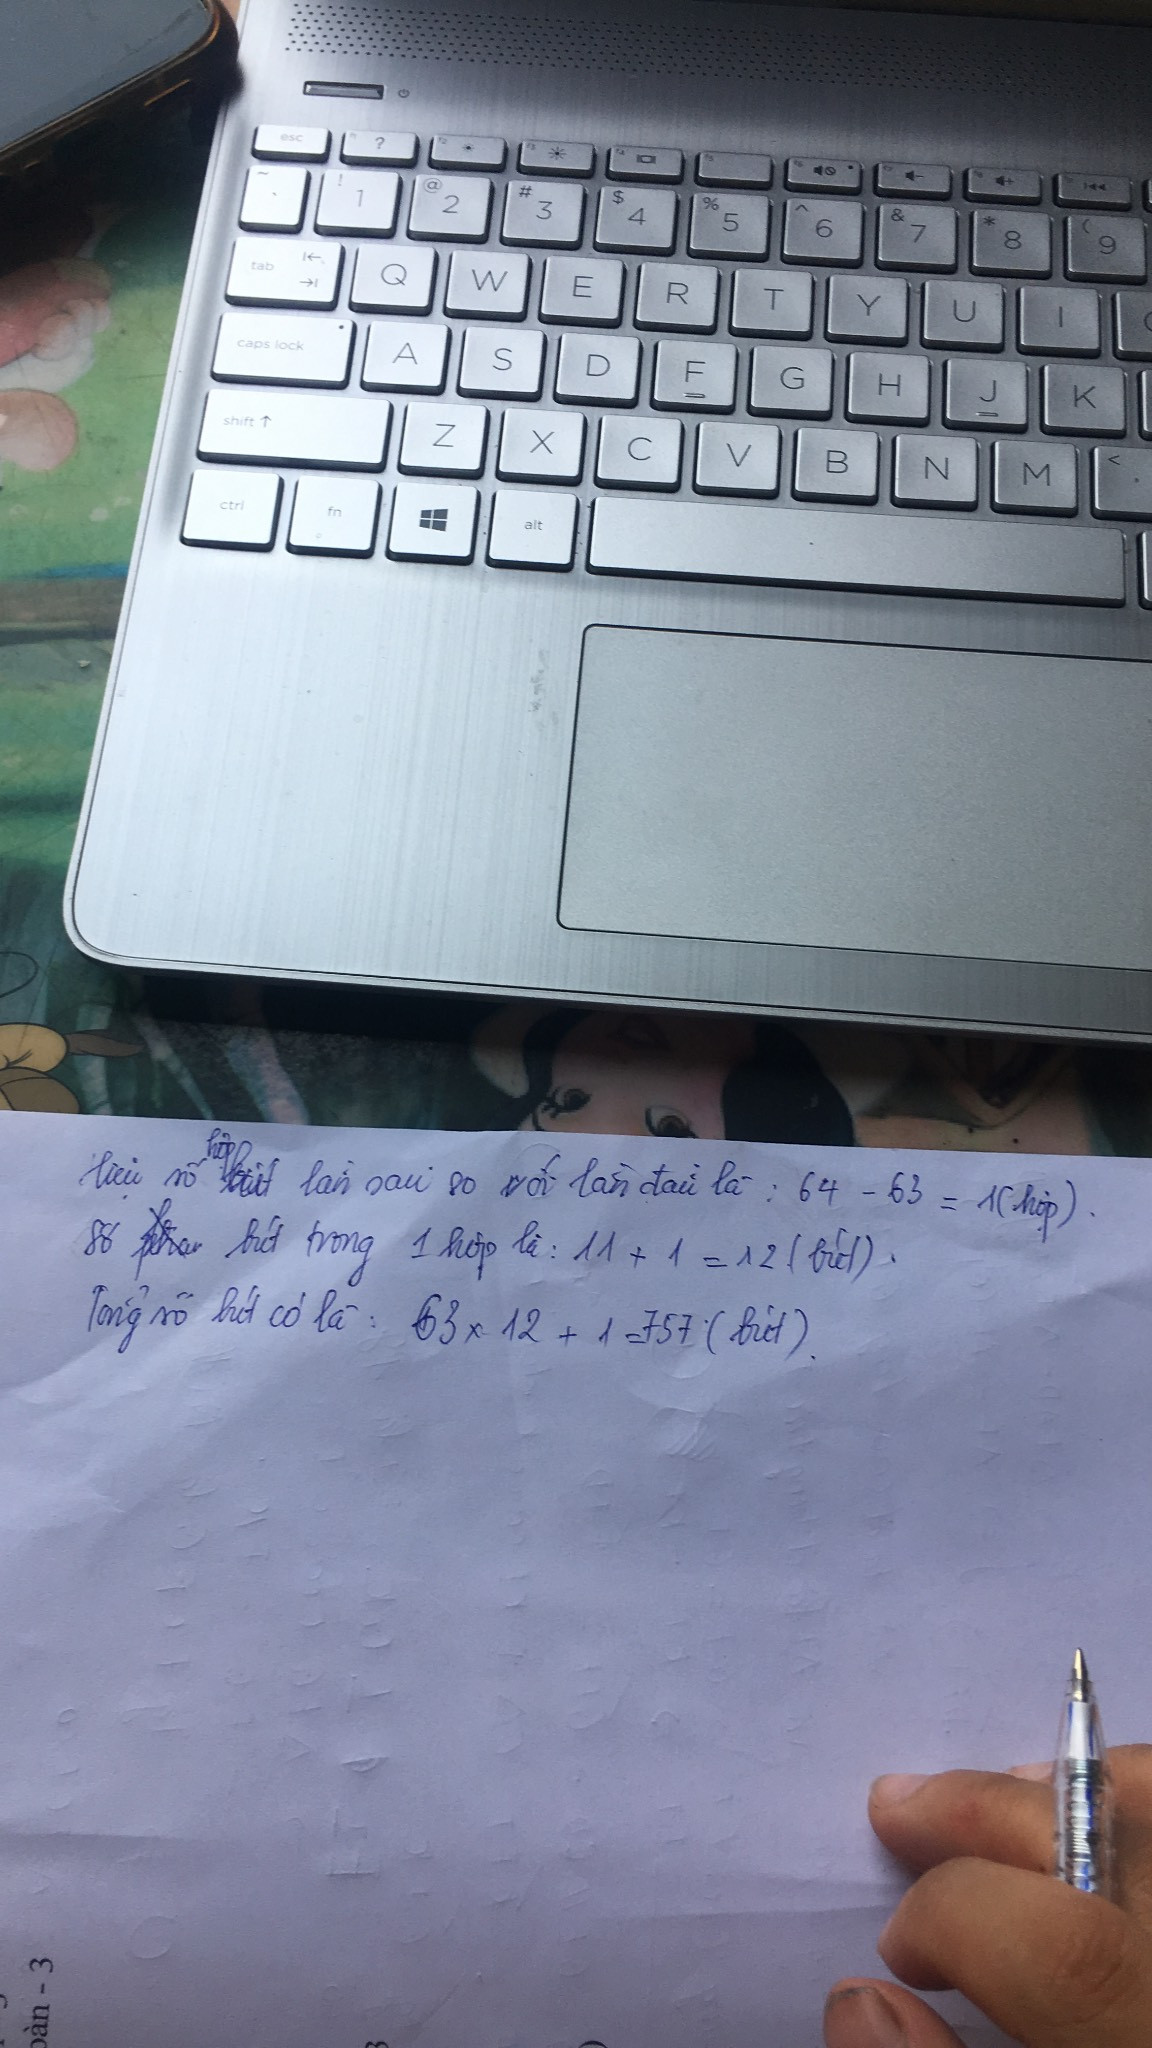 esc ?
~ ` ! 1 @ 2 # 3 $ 4 % 5 ^ 6 & 7 * 8 ( 9
tab Q W E R T Y U I
caps lock A S D F G H J K
shift Z X C V B N M <
ctrl fn alt
hộp
Hiệu số lần sau so với lần đầu là : 64 - 63 = 1(hộp).
Số bút trong 1 hộp là: 11 + 1 = 12 (bút).
Tổng số bút có là : 63 x 12 + 1 = 757 (bút).
oàn - 3